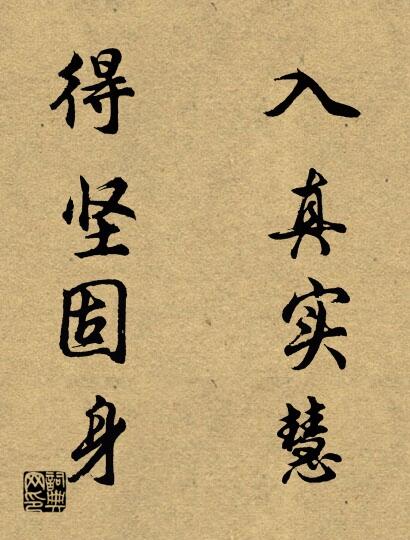 入真实慧
得坚固身
词典网印